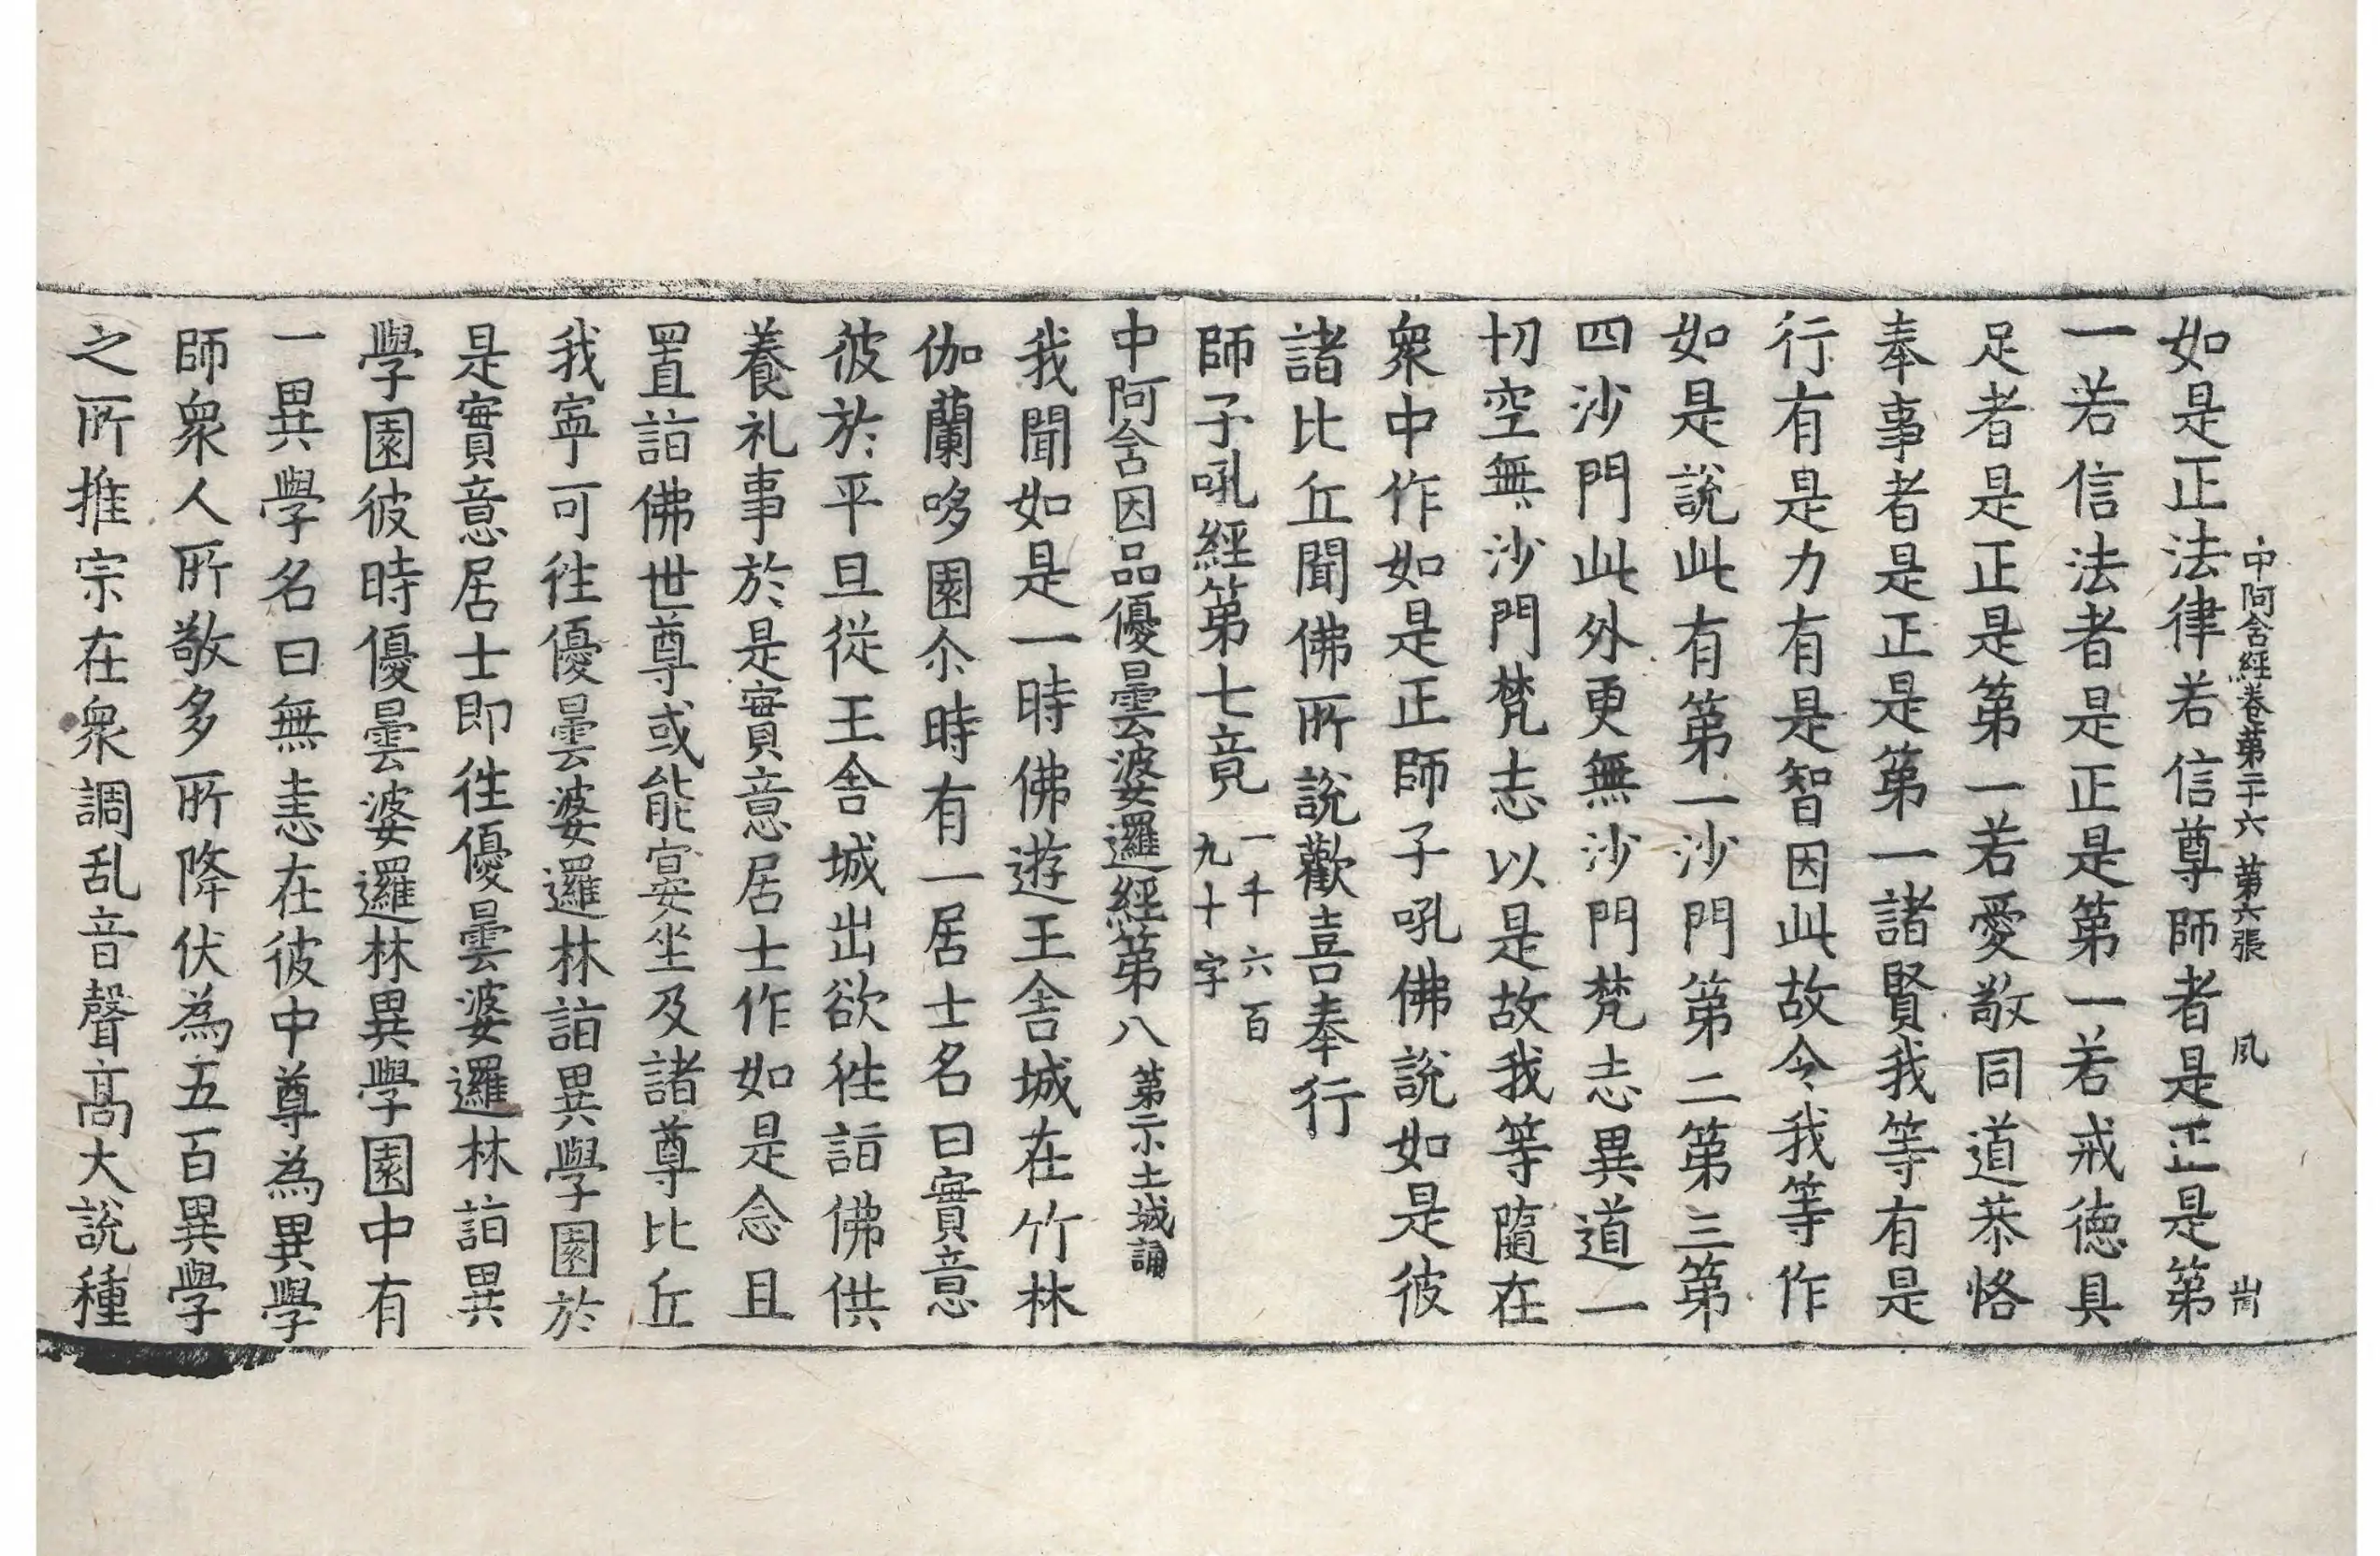 中阿含經卷第二十六 第六張 風 崗
如是正法律若信尊師者是正是第
一若信法者是正是第一若戒德具
足者是正是第一若愛敬同道恭恪
奉事者是正是第一諸賢我等有是
行有是力有是智因此故令我等作
如是說此有第一沙門第二第三第
四沙門此外更無沙門梵志異道一
切空無沙門梵志以是故我等隨在
衆中作如是正師子吼佛說如是彼
諸比丘聞佛所說歡喜奉行
師子吼經第七竟 一千六百九十字
中阿含因品優曇婆邏經第八 第二小土城誦
我聞如是一時佛遊王舍城在竹林
伽蘭哆園尒時有一居士名曰實意
彼於平旦從王舍城出欲徃詣佛供
養礼事於是實意居士作如是念且
置詣佛世尊或能宴坐及諸尊比丘
我寧可徃優曇婆邏林詣異學園於
是實意居士即徃優曇婆邏林詣異
學園彼時優曇婆邏林異學園中有
一異學名曰無恚在彼中尊為異學
師衆人所敬多所降伏為五百異學
之所推宗在衆調乱音聲高大說種